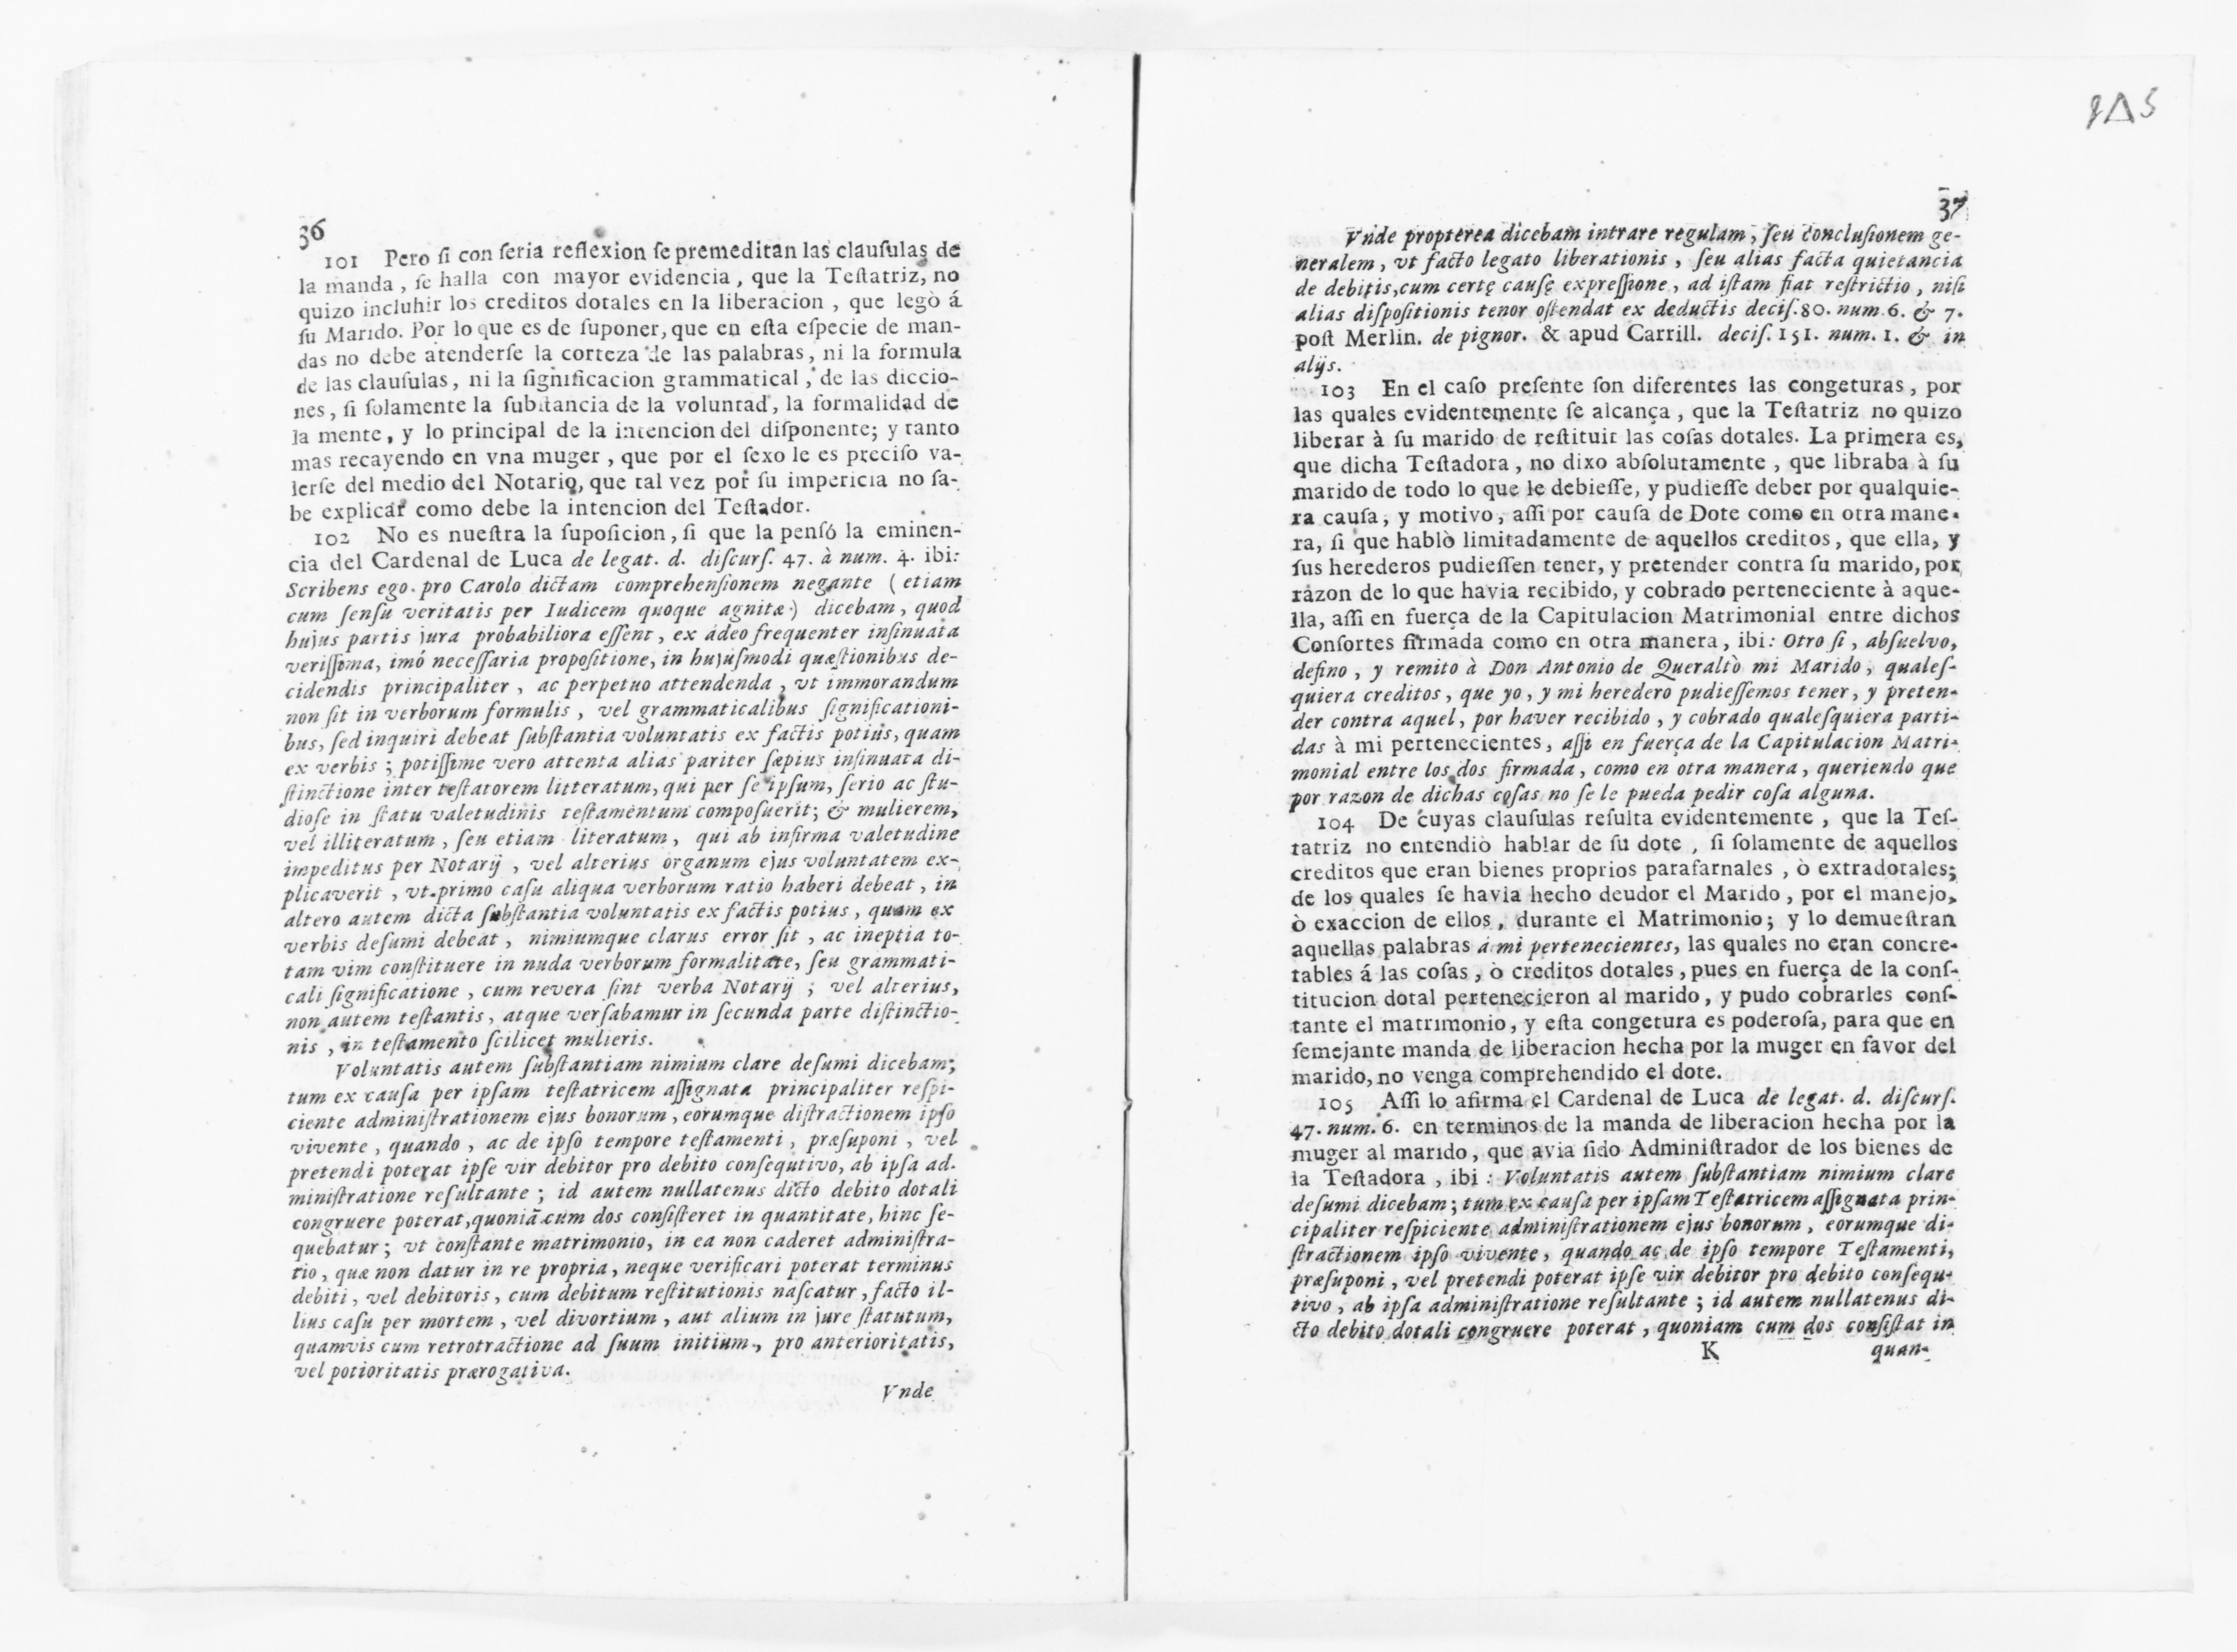 36
101 Pero ſi con ſeria reflexion ſe premeditan las clauſulas de
la manda , ſe halla con mayor evidencia , que la Teſtatriz, no
quizo incluhir los creditos dotales en la liberacion , que legò á
ſu Marido. Por lo que es de ſuponer, que en eſta eſpecie de man-
das no debe atenderſe la corteza de las palabras , ni la formula
de las clauſulas , ni la ſignificacion grammatical , de las diccio-
nes , ſi ſolamente la ſubſtancia de la voluntad , la formalidad de
la mente , y lo principal de la intencion del diſponente; y tanto
mas recayendo en vna muger , que por el ſexo le es preciſo va-
lerſe del medio del Notario, que tal vez por ſu impericia no ſa-
be explicar como debe la intencion del Teſtador.
102 No es nueſtra la ſupoſicion, ſi que la pensó la eminen-
cia del Cardenal de Luca de legat. d. diſcurſ. 47. à num. 4. ibi:
Scribens ego pro Carolo dictam comprehenſionem negante ( etiam
cum ſenſu veritatis per Iudicem quoque agnitæ ) dicebam , quod
hujus partis jura probabiliora eſſent , ex adeo frequenter inſinuata
veriſſima, imó neceſſaria propoſitione, in hujuſmodi quæſtionibus de-
cidendis principaliter , ac perpetuo attendenda , vt immorandum
non ſit in verborum formulis , vel grammaticalibus ſignificationi-
bus, ſed inquiri debeat ſubſtantia voluntatis ex factis potius, quam
ex verbis ; potiſſime vero attenta alias pariter ſæpius inſinuata di-
ſtinctione inter teſtatorem litteratum, qui per ſe ipſum, ſerio ac ſtu-
dioſe in ſtatu valetudinis teſtamentum compoſuerit; & mulierem,
vel illiteratum , ſeu etiam literatum , qui ab infirma valetudine
impeditus per Notarij , vel alterius organum ejus voluntatem ex-
plicaverit , vt primo caſu aliqua verborum ratio haberi debeat , in
altero autem dicta ſubſtantia voluntatis ex factis potius , quam ex
verbis deſumi debeat , nimiumque clarus error ſit , ac ineptia to-
tam vim conſtituere in nuda verborum formalitate, ſeu grammati-
cali ſignificatione , cum revera ſint verba Notarij ; vel alterius,
non autem teſtantis, atque verſabamur in ſecunda parte diſtinctio-
nis , in teſtamento ſcilicet mulieris.
Voluntatis autem ſubſtantiam nimium clare deſumi dicebam;
tum ex cauſa per ipſam teſtatricem aſſignata principaliter reſpi-
ciente adminiſtrationem ejus bonorum , eorumque diſtractionem ipſo
vivente , quando , ac de ipſo tempore teſtamenti , præſuponi , vel
pretendi poterat ipſe vir debitor pro debito conſequtivo, ab ipſa ad-
miniſtratione reſultante ; id autem nullatenus dicto debito dotali
congruere poterat, quoniã cum dos conſiſteret in quantitate, hinc ſe-
quebatur ; vt conſtante matrimonio, in ea non caderet adminiſtra-
tio , quæ non datur in re propria , neque verificari poterat terminus
debiti , vel debitoris , cum debitum reſtitutionis naſcatur , facto il-
lius caſu per mortem , vel divortium , aut alium in jure ſtatutum,
quamvis cum retrotractione ad ſuum initium , pro anterioritatis,
vel potioritatis prærogativa.
Vnde
37
Vnde propterea dicebam intrare regulam , ſeu concluſionem ge-
neralem , vt facto legato liberationis , ſeu alias facta quietancia
de debitis, cum certę cauſę expreſſione , ad iſtam fiat reſtrictio , niſi
alias diſpoſitionis tenor oſtendat ex deductis deciſ. 80. num. 6. & 7.
poſt Merlin. de pignor. & apud Carrill. deciſ. 151. num. 1. & in
alijs.
103 En el caſo preſente ſon diferentes las congeturas , por
las quales evidentemente ſe alcança , que la Teſtatriz no quizo
liberar à ſu marido de reſtituir las coſas dotales. La primera es,
que dicha Teſtadora , no dixo abſolutamente , que libraba à ſu
marido de todo lo que le debieſſe, y pudieſſe deber por qualquie-
ra cauſa , y motivo , aſſi por cauſa de Dote como en otra mane-
ra, ſi que hablò limitadamente de aquellos creditos, que ella, y
ſus herederos pudieſſen tener, y pretender contra ſu marido, por
razon de lo que havia recibido, y cobrado perteneciente à aque-
lla, aſſi en fuerça de la Capitulacion Matrimonial entre dichos
Conſortes firmada como en otra manera , ibi: Otro ſi , abſuelvo,
defino , y remito à Don Antonio de Queraltò mi Marido , qualeſ-
quiera creditos , que yo , y mi heredero pudieſſemos tener , y preten-
der contra aquel, por haver recibido , y cobrado qualeſquiera parti-
das à mi pertenecientes, aſſi en fuerça de la Capitulacion Matri-
monial entre los dos firmada , como en otra manera , queriendo que
por razon de dichas coſas no ſe le pueda pedir coſa alguna.
104 De cuyas clauſulas reſulta evidentemente , que la Teſ-
tatriz no entendiò hablar de ſu dote , ſi ſolamente de aquellos
creditos que eran bienes proprios parafarnales , ò extradotales;
de los quales ſe havia hecho deudor el Marido , por el manejo,
ò exaccion de ellos , durante el Matrimonio; y lo demueſtran
aquellas palabras á mi pertenecientes, las quales no eran concre-
tables á las coſas , ò creditos dotales , pues en fuerça de la conſ-
titucion dotal pertenecieron al marido , y pudo cobrarles conſ-
tante el matrimonio, y eſta congetura es poderoſa, para que en
ſemejante manda de liberacion hecha por la muger en favor del
marido, no venga comprehendido el dote.
105 Aſſi lo afirma el Cardenal de Luca de legat. d. diſcurſ.
47. num. 6. en terminos de la manda de liberacion hecha por la
muger al marido , que avia ſido Adminiſtrador de los bienes de
la Teſtadora , ibi : Voluntatis autem ſubſtantiam nimium clare
deſumi dicebam ; tum ex cauſa per ipſam Teſtatricem aſſignata prin-
cipaliter reſpiciente adminiſtrationem ejus bonorum , eorumque di-
ſtractionem ipſo vivente , quando ac de ipſo tempore Teſtamenti,
præſuponi , vel pretendi poterat ipſe vir debitor pro debito conſequ-
tivo , ab ipſa adminiſtratione reſultante ; id autem nullatenus di-
cto debito dotali congruere poterat , quoniam cum dos conſiſtat in
K quan-